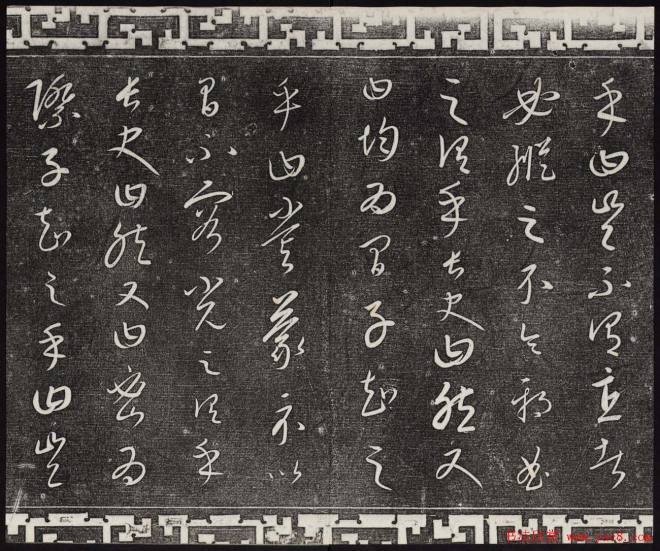 乎曰豈不謂直者
必縱之不令邪曲
之謂乎長史曰然又
曰均為間子知之
乎曰嘗蒙示以
間不容光之謂乎
長史曰然又曰密為
際子知之乎曰豈
书法欣赏 www.yac8.com